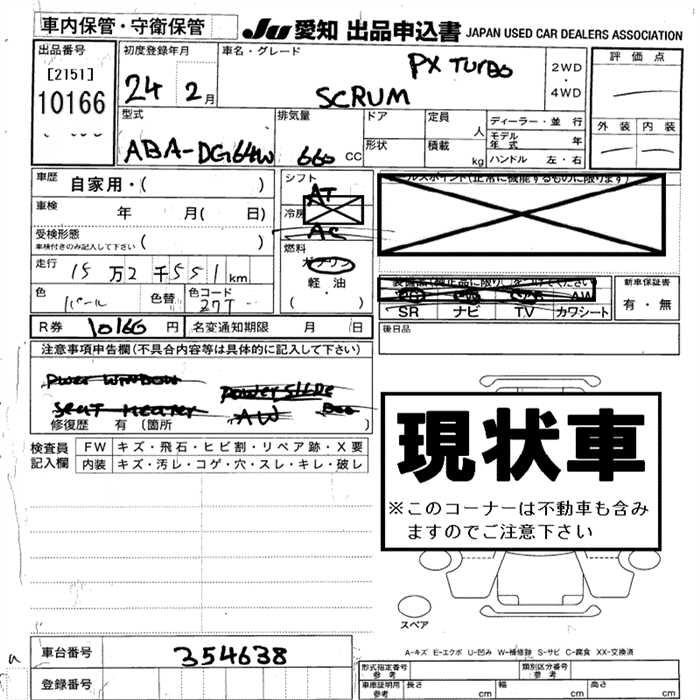 車内保管・守衛保管 JU 愛知 出品申込書 JAPAN USED CAR DEALERS ASSOCIATION
出品番号 初度登録年月 車名・グレード 評価点
[2151] PX TURBO 2WD
10166 24 2月 SCRUM ・
4WD
型式 排気量 ドア 定員 人 ディーラー・並行 外装 内装
モデル年式 年
ABA-DG64W 660 CC 形状 積載 kg ハンドル 左・右
車歴 自家用・( ) シフト AT
車検 年 月( 日) 冷房 AC
受検形態
車検付きのみ記入して下さい ( ) 燃料
ガソリン
走行 15万2千551km 軽油
色 パール 色替 色コード Z7T (・)
新車保証書
有・無
SR ナビ T.V カワシート
R券 10166円 名変通知期限 月 日 後日品
注意事項申告欄(不具合内容等は具体的に記入して下さい)
POWER WINDOW POWER SLIDE
SEAT HEATER AW
修復歴 有〔箇所 〕
検査員 FW キズ・飛石・ヒビ割・リペア跡・X要
記入欄 内装 キズ・汚レ・コゲ・穴・スレ・キレ・破レ
現状車
※このコーナーは不動車も含み
ますのでご注意下さい
スペア
A-キズ E-エクボ U-凹み W-補修跡 S-サビ C-腐食 XX-交換済
車台番号 354638
登録番号
型式指定番号 参考 類別区分番号 参考
車庫証明用 参考 長さ cm 幅 cm 高さ cm